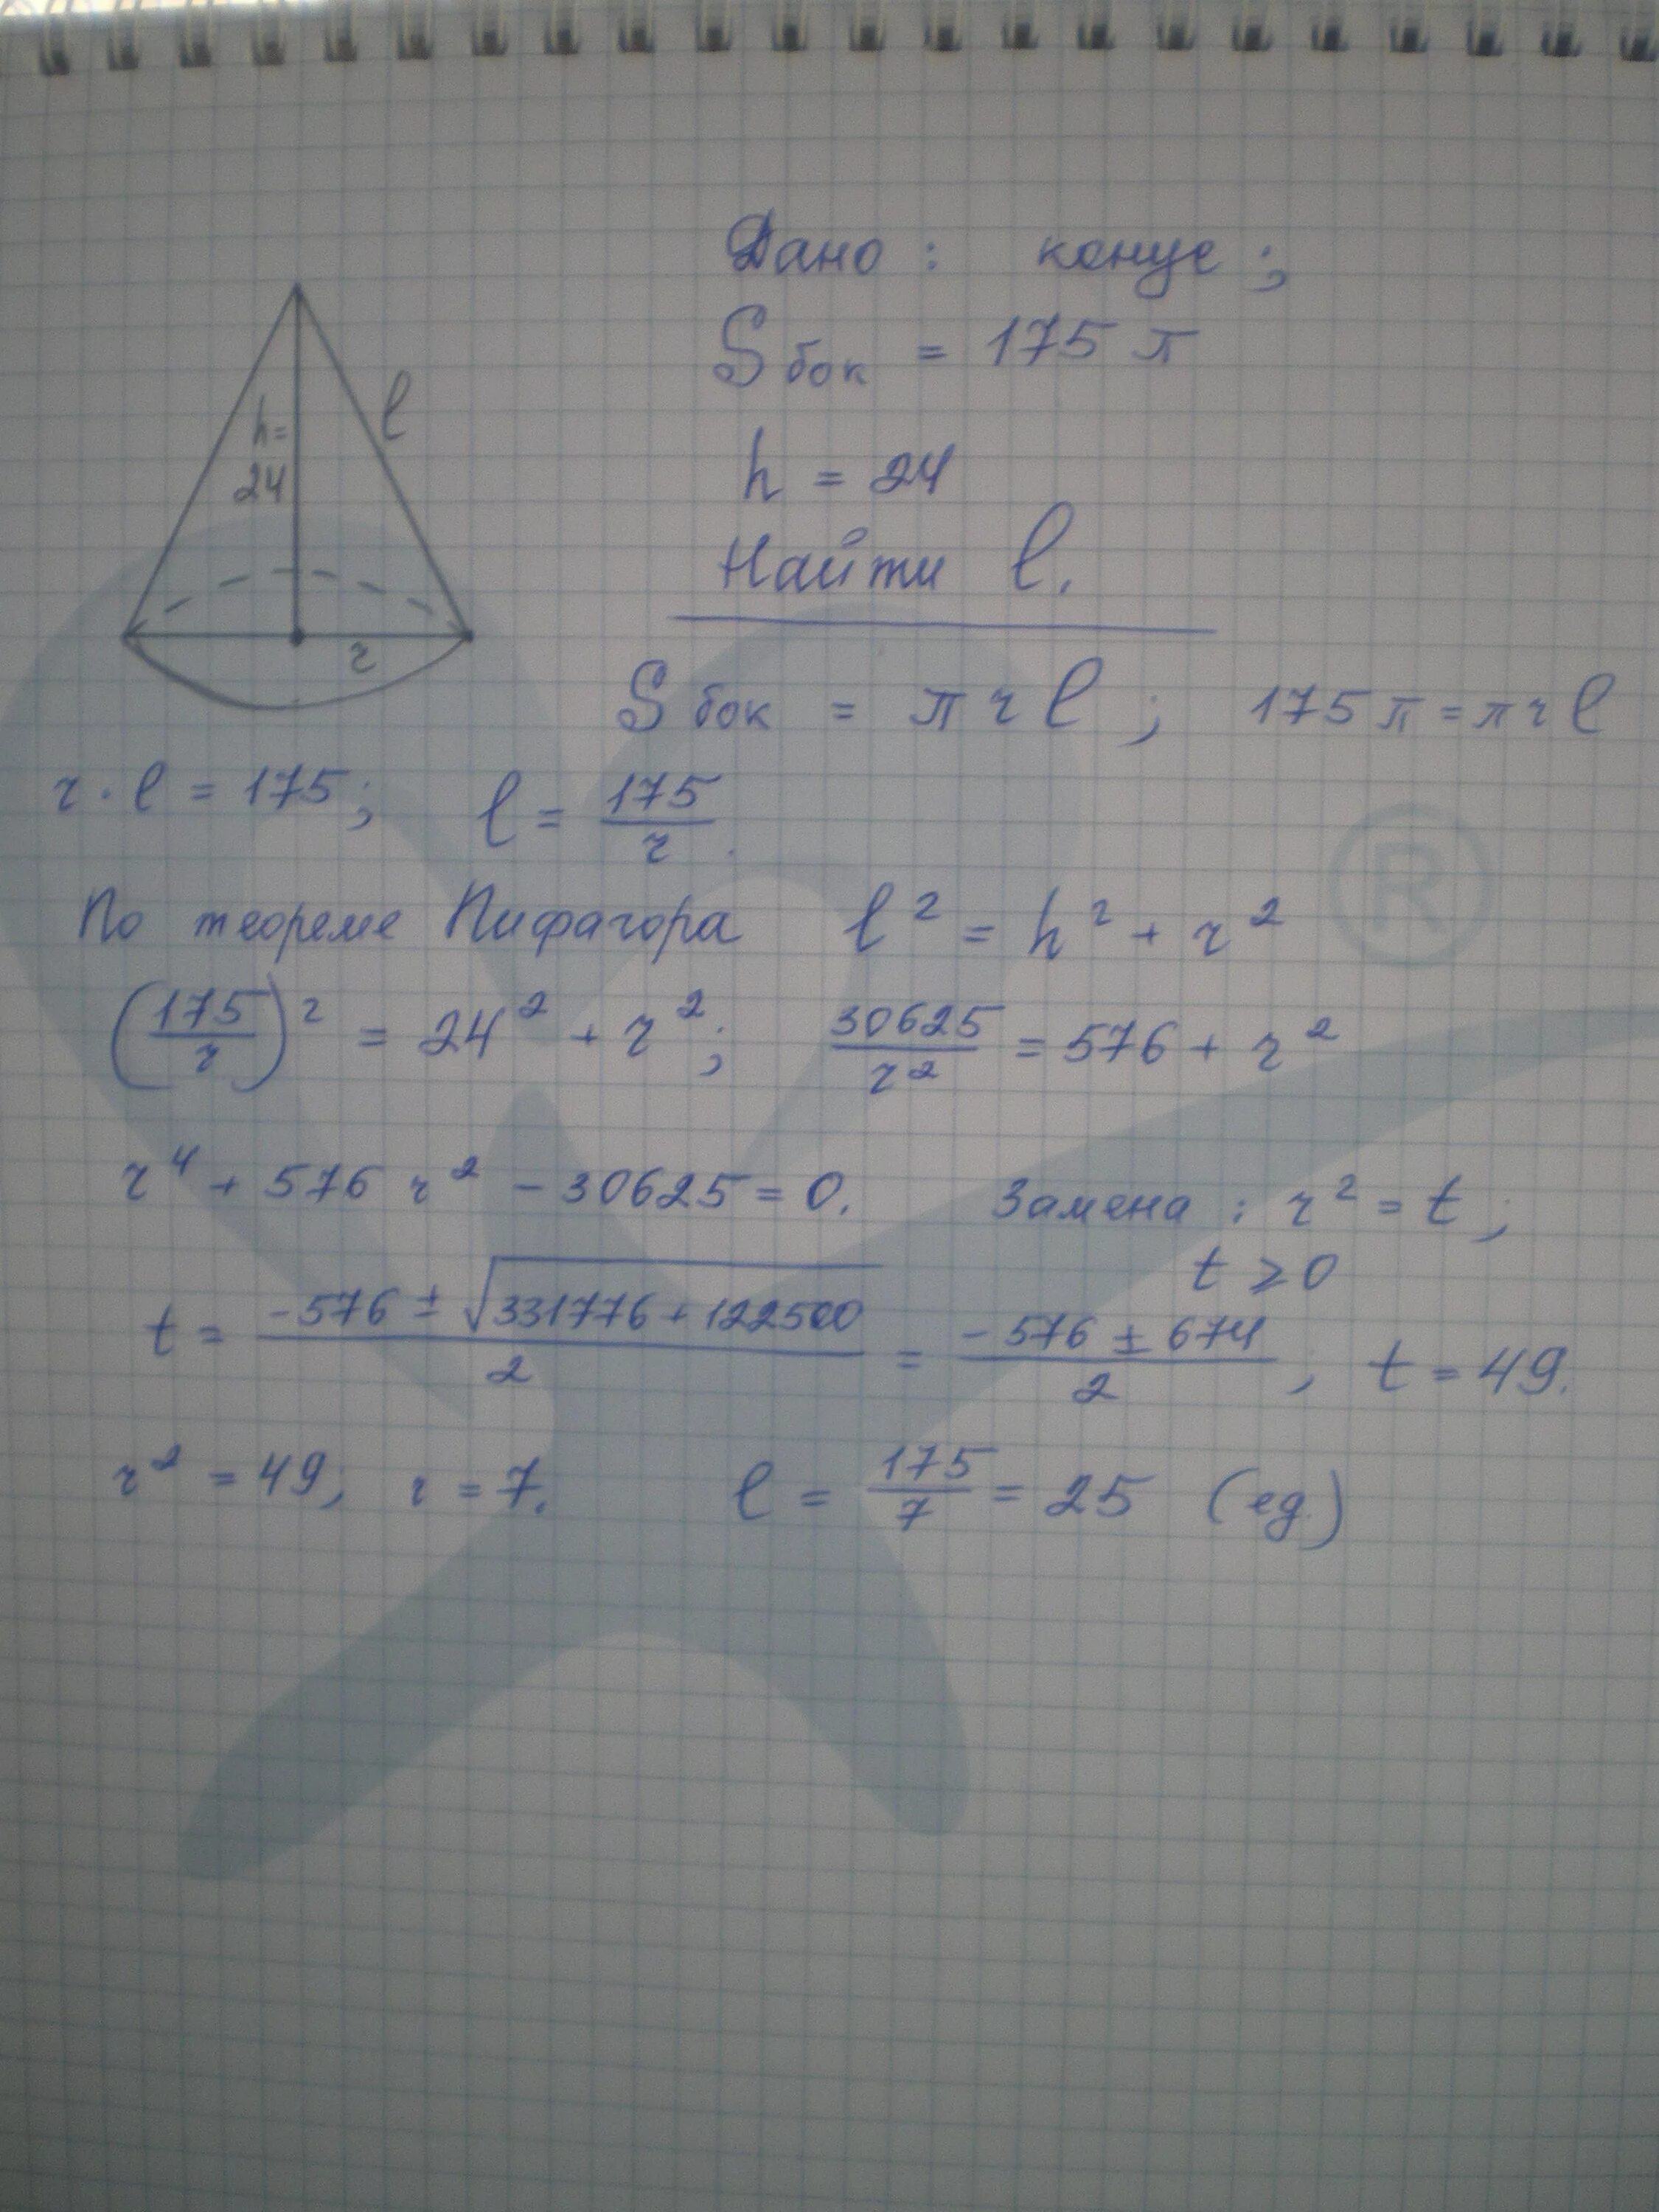 Дано: конус;
Sбок = 175π
h = 24
Найти l.
h =
24
l
r
Sбок = πrl; 175π = πrl
r · l = 175; l = 175/r.
По теореме Пифагора l² = h² + r²
(175/r)² = 24² + r²; 30625/r² = 576 + r²
r⁴ + 576 r² - 30625 = 0. Замена: r² = t;
t ⩾ 0
t = (-576 ± √(331776 + 122500))/2 = (-576 ± 674)/2; t = 49.
r² = 49; r = 7. l = 175/7 = 25 (ед.)
®